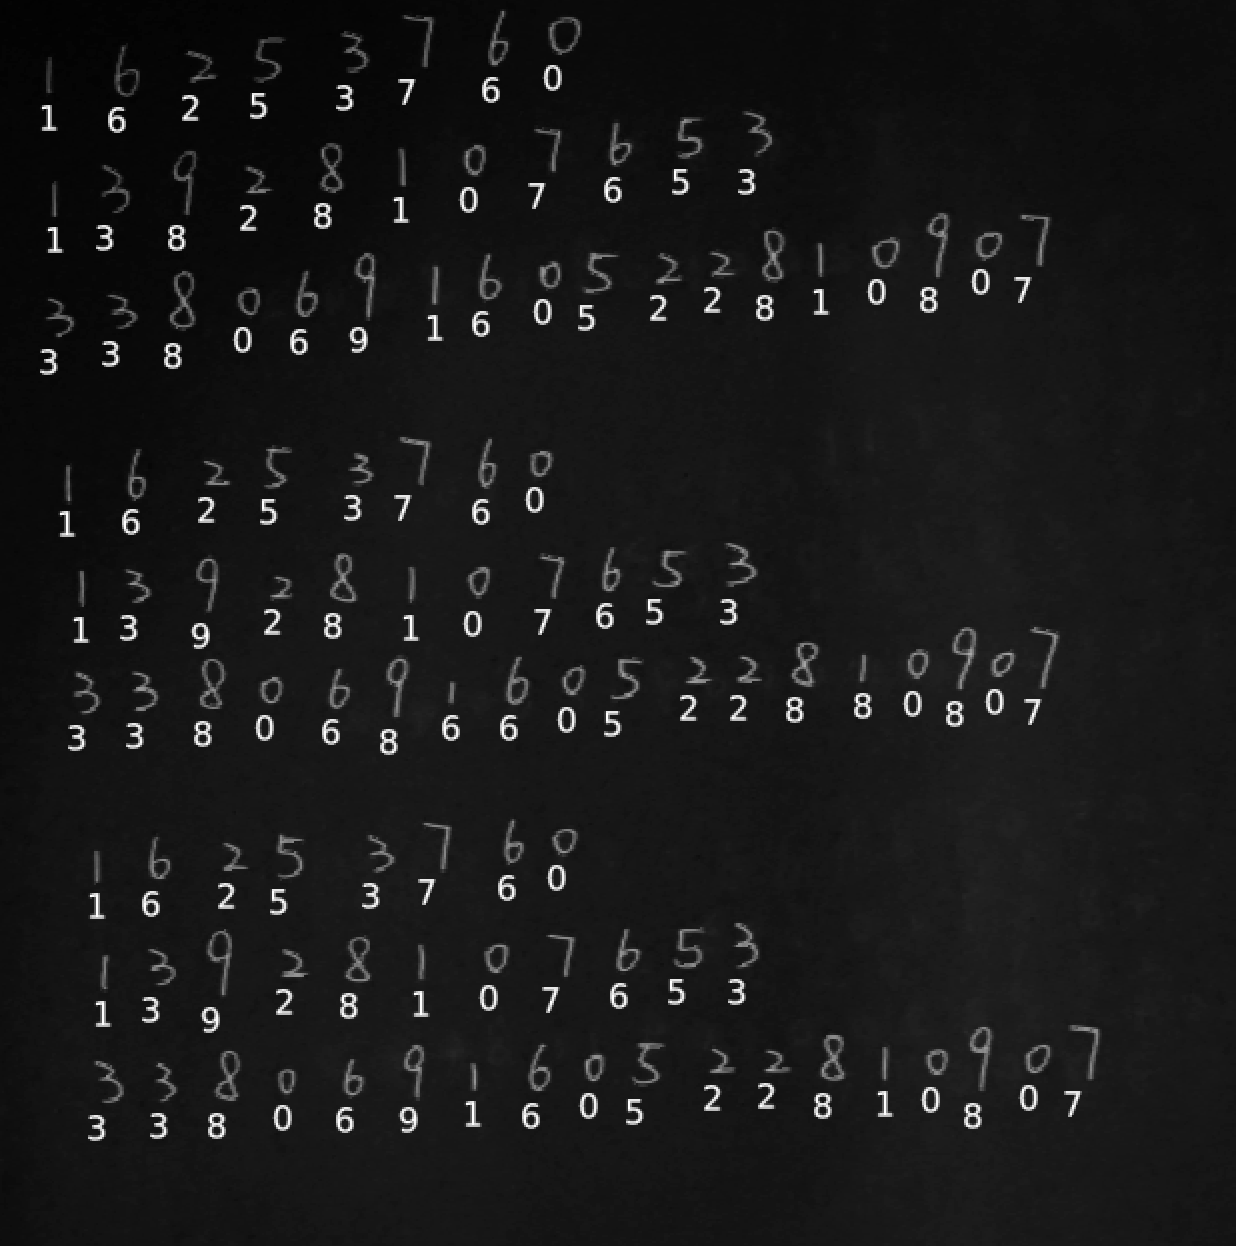 1 6 2 5 3 7 6 0
1 6 2 5 3 7 6 0
1 3 9 2 8 1 0 7 6 5 3
1 3 8 2 8 1 0 7 6 5 3
3 3 8 0 6 9 1 6 0 5 2 2 8 1 0 9 0 7
3 3 8 0 6 9 1 6 0 5 2 2 8 1 0 8 0 7
1 6 2 5 3 7 6 0
1 6 2 5 3 7 6 0
1 3 9 2 8 1 0 7 6 5 3
1 3 9 2 8 1 0 7 6 5 3
3 3 8 0 6 9 1 6 0 5 2 2 8 1 0 9 0 7
3 3 8 0 6 8 6 6 0 5 2 2 8 8 0 8 0 7
1 6 2 5 3 7 6 0
1 6 2 5 3 7 6 0
1 3 9 2 8 1 0 7 6 5 3
1 3 9 2 8 1 0 7 6 5 3
3 3 8 0 6 9 1 6 0 5 2 2 8 1 0 9 0 7
3 3 8 0 6 9 1 6 0 5 2 2 8 1 0 8 0 7